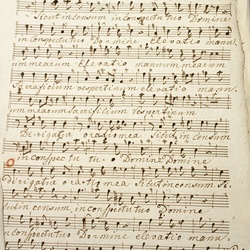 Sicut in censum in conspectu tuo Domine
in conspectu tuo Domine elevatio manu
um mearum Elevatio manuum mearum
Sacrificium vespertinum elevatio man.
um mearum Sacrificium Vespertinum
Dirigatur oratio mea Sicut in censum
in conspectu tuo Domine Domine
Dirigatur oratio mea Sicut in censum Si
cut in censum, in conspectu tuo Domine
in conspectu tuo Domine elevatio manu.